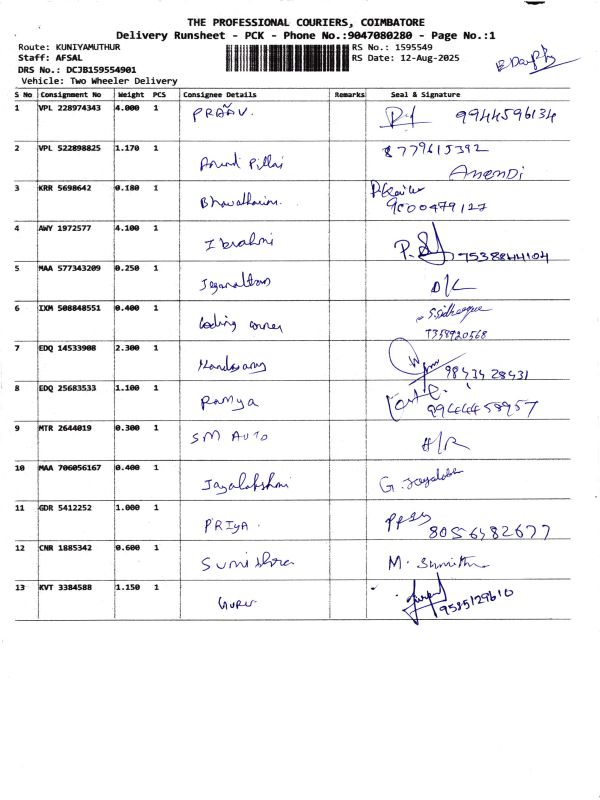 THE PROFESSIONAL COURIERS, COIMBATORE
Delivery Runsheet - PCK - Phone No.:9047080280 - Page No.:1
Route: KUNIYAMUTHUR RS No.: 1595549
Staff: AFSAL RS Date: 12-Aug-2025
DRS No.: DCJB159554901
Vehicle: Two Wheeler Delivery
S No Consignment No Weight PCS Consignee Details Remarks Seal & Signature
1 VPL 228974343 4.000 1 9944596134
2 VPL 522898825 1.170 1 Anand Pillai 8779615392
Anandi
3 KRR 5698642 0.180 1 9000479127
4 AWY 1972577 4.100 1 Ibrahmi 7538844104
5 MAA 577343209 0.250 1 D/L
6 IXM 508848551 0.400 1 Coding corner S.Sidheeque
7358920568
7 EDQ 14533908 2.300 1 9843428431
8 EDQ 25683533 1.100 1 Ramya 9944458957
9 MTR 2644019 0.300 1 SM AUTO H/R
10 MAA 706056167 0.400 1 Jayalakshmi G.
11 GDR 5412252 1.000 1 PRIYA. 8056482677
12 CNR 1885342 0.600 1 M. Sumithra
13 KVT 3384588 1.150 1 Guru 9585129610